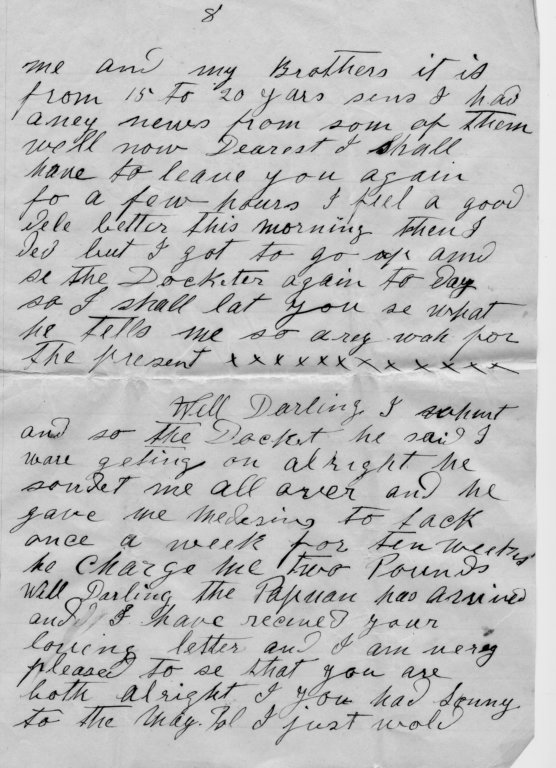 8
me and my Brothers it is
from 15 to 20 yars sens I had
aney news from som of them
well now Dearest I shall
have to leave you again
fo a few hours I feel a good
dele better this morning then I
ded but I got to go up and
se the Docketer again to day
so I shall lat you se what
he tells me so aney wah for
the present x x x x x x x x x x x x x
Well Darling I
and so the Docket he said I
ware geting on alright he
sondet me all over and he
gave me medesing to tack
once a week for ten weeks
he charge me two Pounds
Well Darling the Papuan has arrived
and I have receved your
loving letter and I am verey
pleased to se that you are
both alright I you had Sonny
to the I just wold